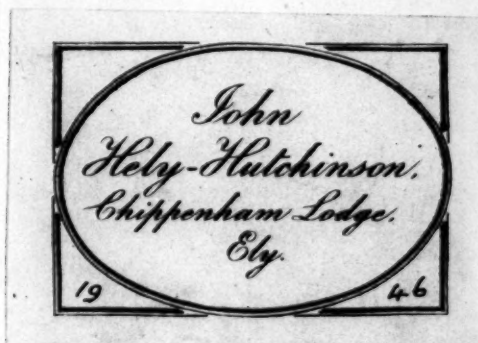 John
Hely-Hutchinson,
Chippenham Lodge,
Ely.
19 46